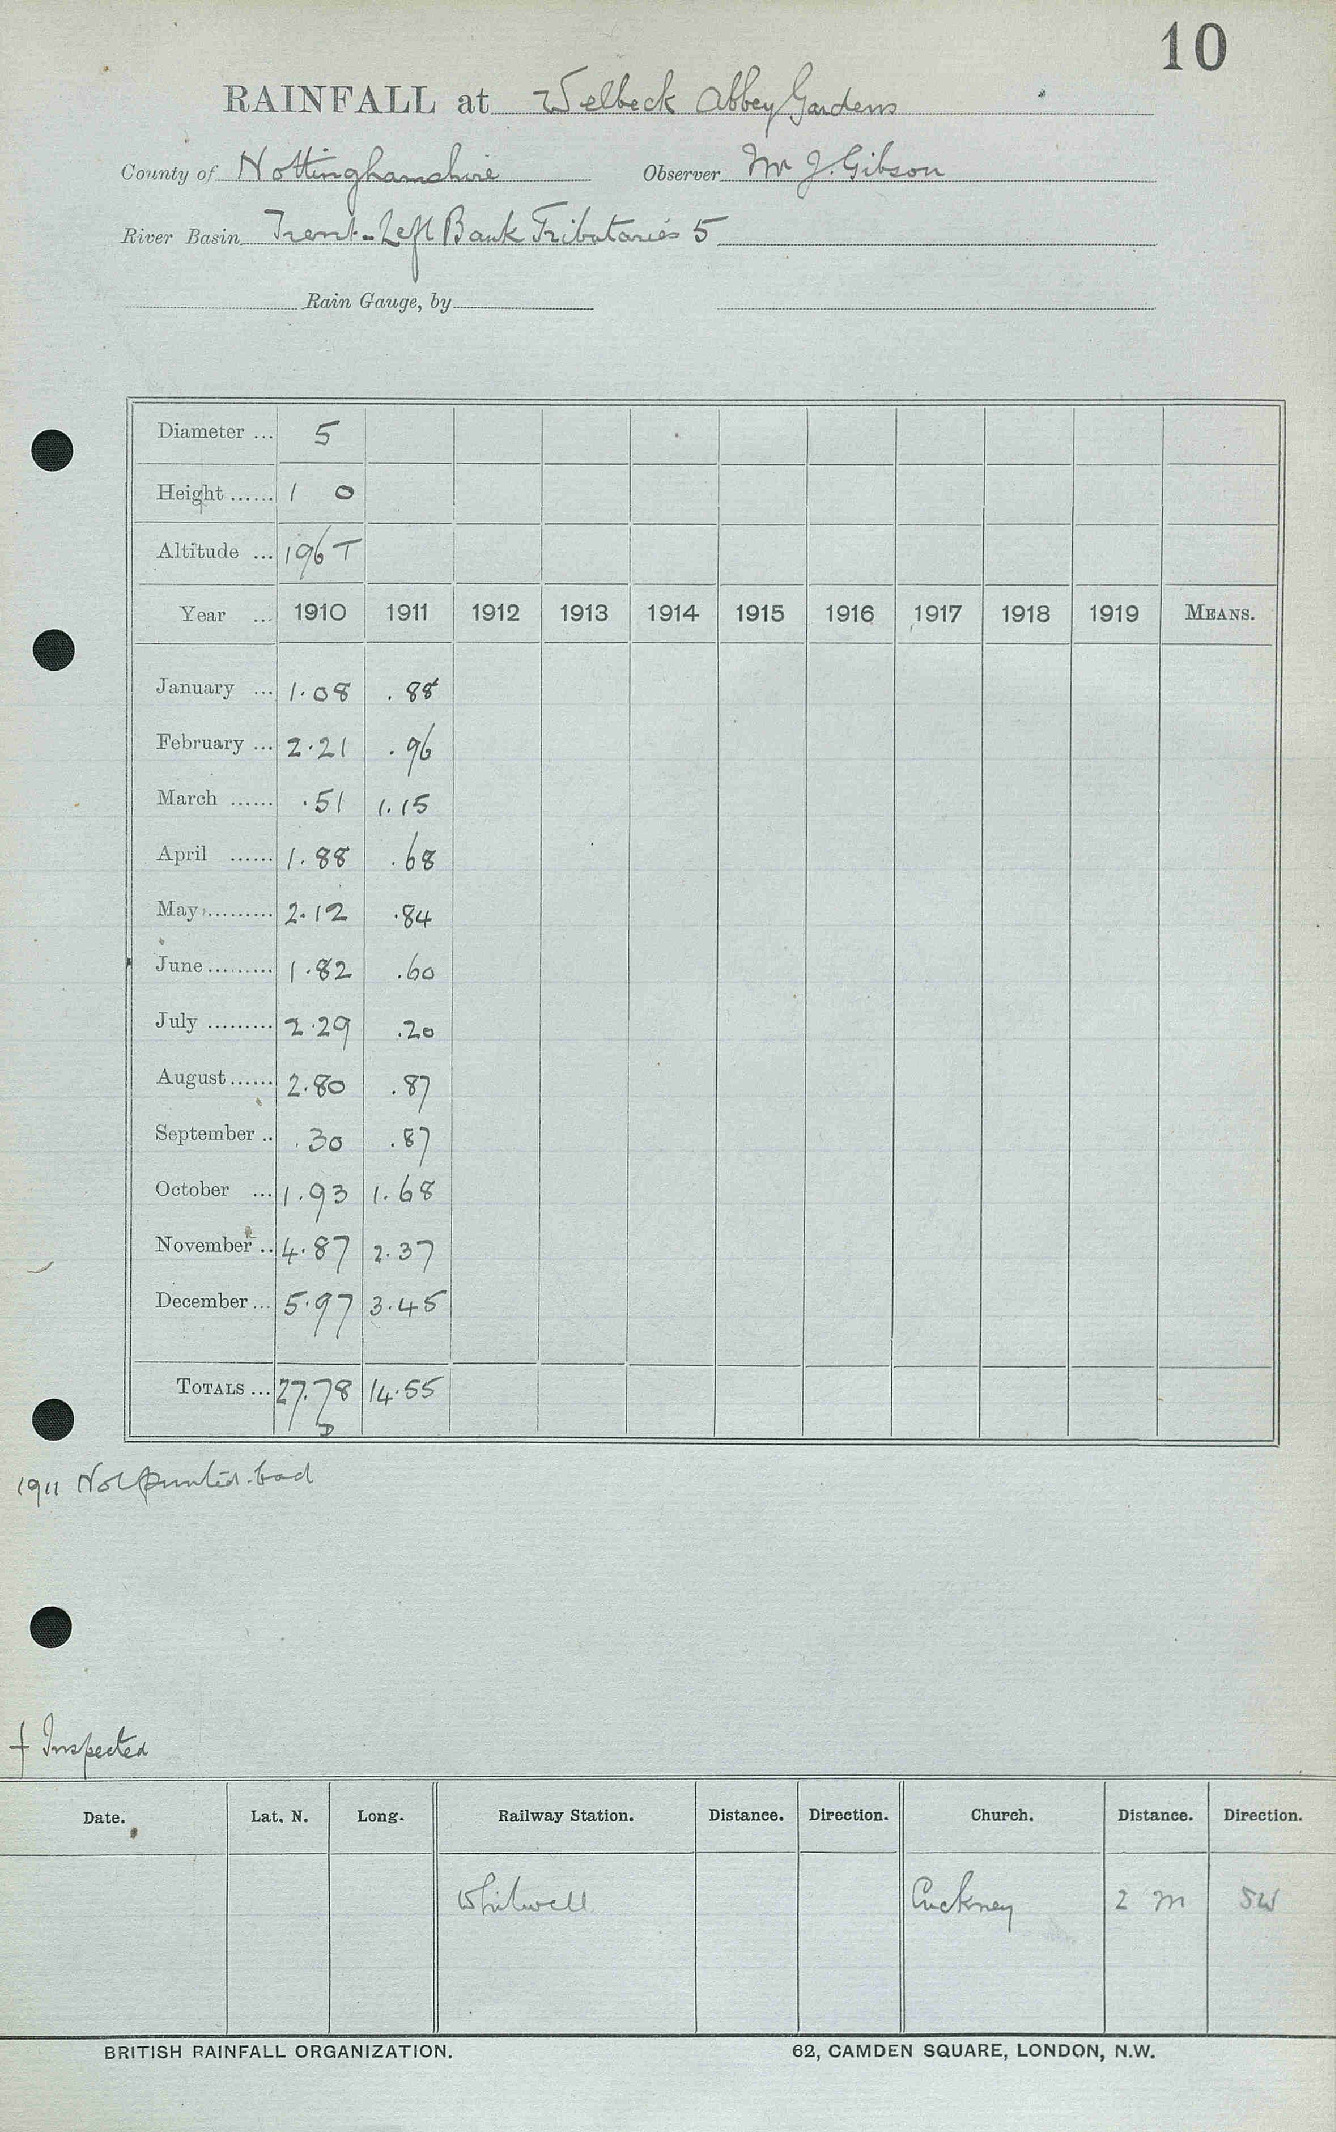 10
RAINFALL at Welbeck Abbey Gardens
County of Nottinghamshire Observer Mr J. Gibson
River Basin Trent-Left Bank Tributaries 5
Rain Gauge, by
Diameter ... 5
Height ...... 1 0
Altitude ... 196 T
Year ... 1910 1911 1912 1913 1914 1915 1916 1917 1918 1919 MEANS.
January ... 1.08 .88
February ... 2.21 .96
March ...... .51 1.15
April ...... 1.88 .68
May ......... 2.12 .84
June ......... 1.82 .60
July ......... 2.29 .20
August ...... 2.80 .87
September .. .30 .87
October ... 1.93 1.68
November .. 4.87 2.37
December ... 5.97 3.45
TOTALS ... 27.78 14.55
D
1911 Not printed. bad
† Inspected
Date. Lat. N. Long. Railway Station. Distance. Direction. Church. Distance. Direction.
Whitwell Cuckney 2 m SW
BRITISH RAINFALL ORGANIZATION. 62, CAMDEN SQUARE, LONDON, N.W.